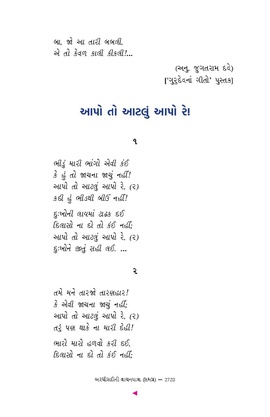 બા, જો આ તારી બબલી,
એ તો કેવળ કાલી કીકલી!...
(અનુ. જુગતરામ દવે)
['ગુરુદેવનાં ગીતો' પુસ્તક]
આપો તો આટલું આપો રે!
૧
ભીડું મારી ભાંગો એવી કંઈ
કે હું તો જાચના જાચું નહીં!
આપો તો આટલું આપો રે. (૨)
કદી હું ભીડથી બીઉં નહીં!
દુઃખોની લાયમાં ટાઢક દઈ
દિલાસો ના દો તો કંઈ નહીં;
આપો તો આટલું આપો રે. (૨)
દુઃખોને જીતું સહી લઈ. ...
૨
તમે મને તારજો તારણહાર!
કે એવી જાચના જાચું નહીં;
આપો તો આટલું આપો રે. (૨)
તરું પણ થાકે ના મારી દેહી!
ભારો મારો હળવો કરી દઈ,
દિલાસો ના દો તો કંઈ નહીં;
અરધી સદીની વાચનયાત્રા — 2720